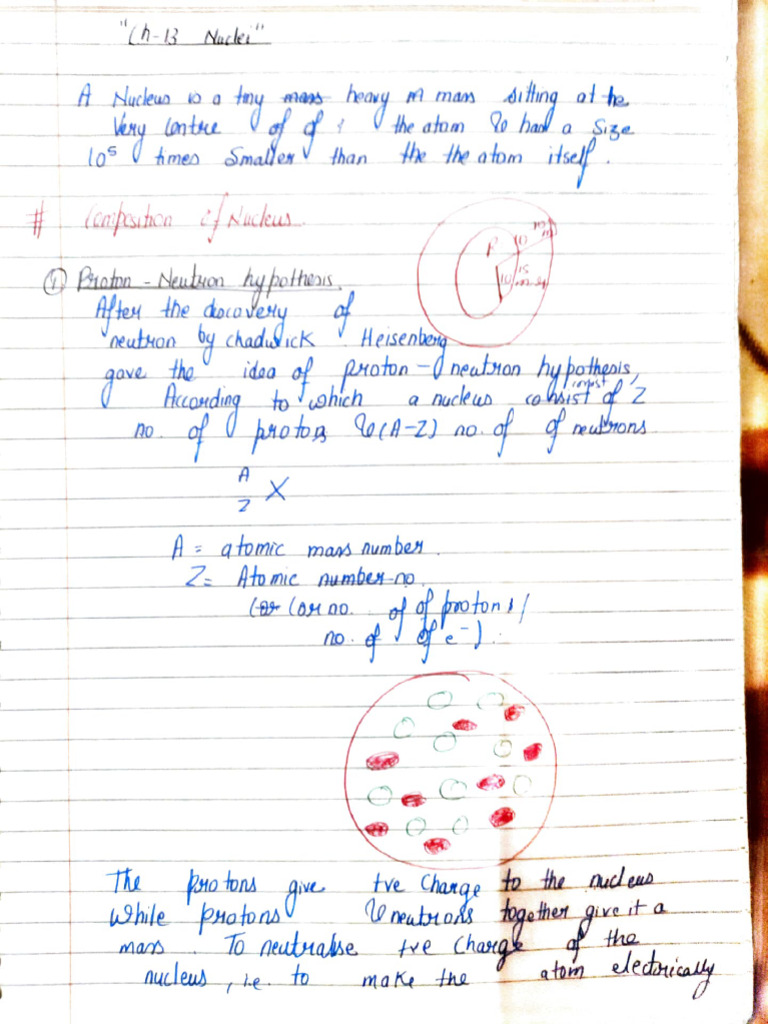 "Ch-13 Nuclei"
A Nucleus is a tiny mass heavy m mass sitting at the
Very Centre of of the atom & had a size
10⁵ times smaller than the the atom itself.
# Composition of Nucleus
P
10
10
① Proton-Neutron hypothesis.
After the discovery of
neutron by chadwick Heisenberg
gave the idea of proton-neutron hypothesis,
According to which a nucleus consist of Z
no. of protons & (A-Z) no. of of neutrons
A
Z X
A = atomic mass number.
Z = Atomic number no.
(or (or no. of of protons/
no. of of e⁻).
The protons give +ve Charge to the nucleus
while protons & neutrons together give it a
mass. To neutralise +ve Charge of the
nucleus, i.e. to make the atom electrically